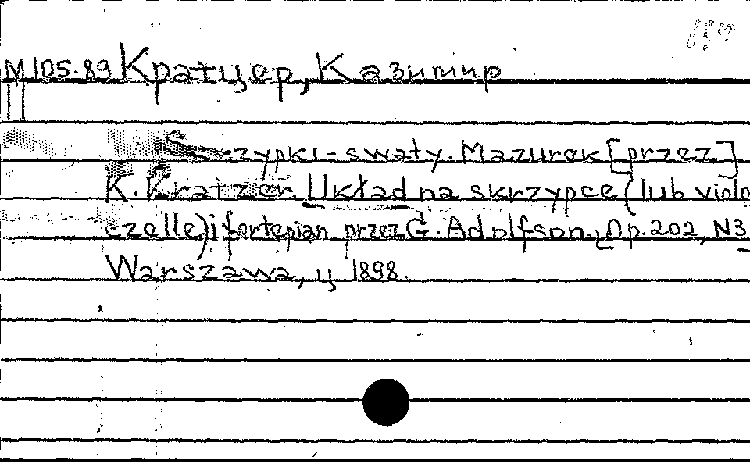 М 105.89 Кратцер, Казимир
II
-zypki-swaty. Mazurek [przez]
K. Kratzer. Układ na skrzypce (lub violo
czelle) i fortepian przez G. Adolfson. Op. 202, N3
Warszawa, ц 1898.